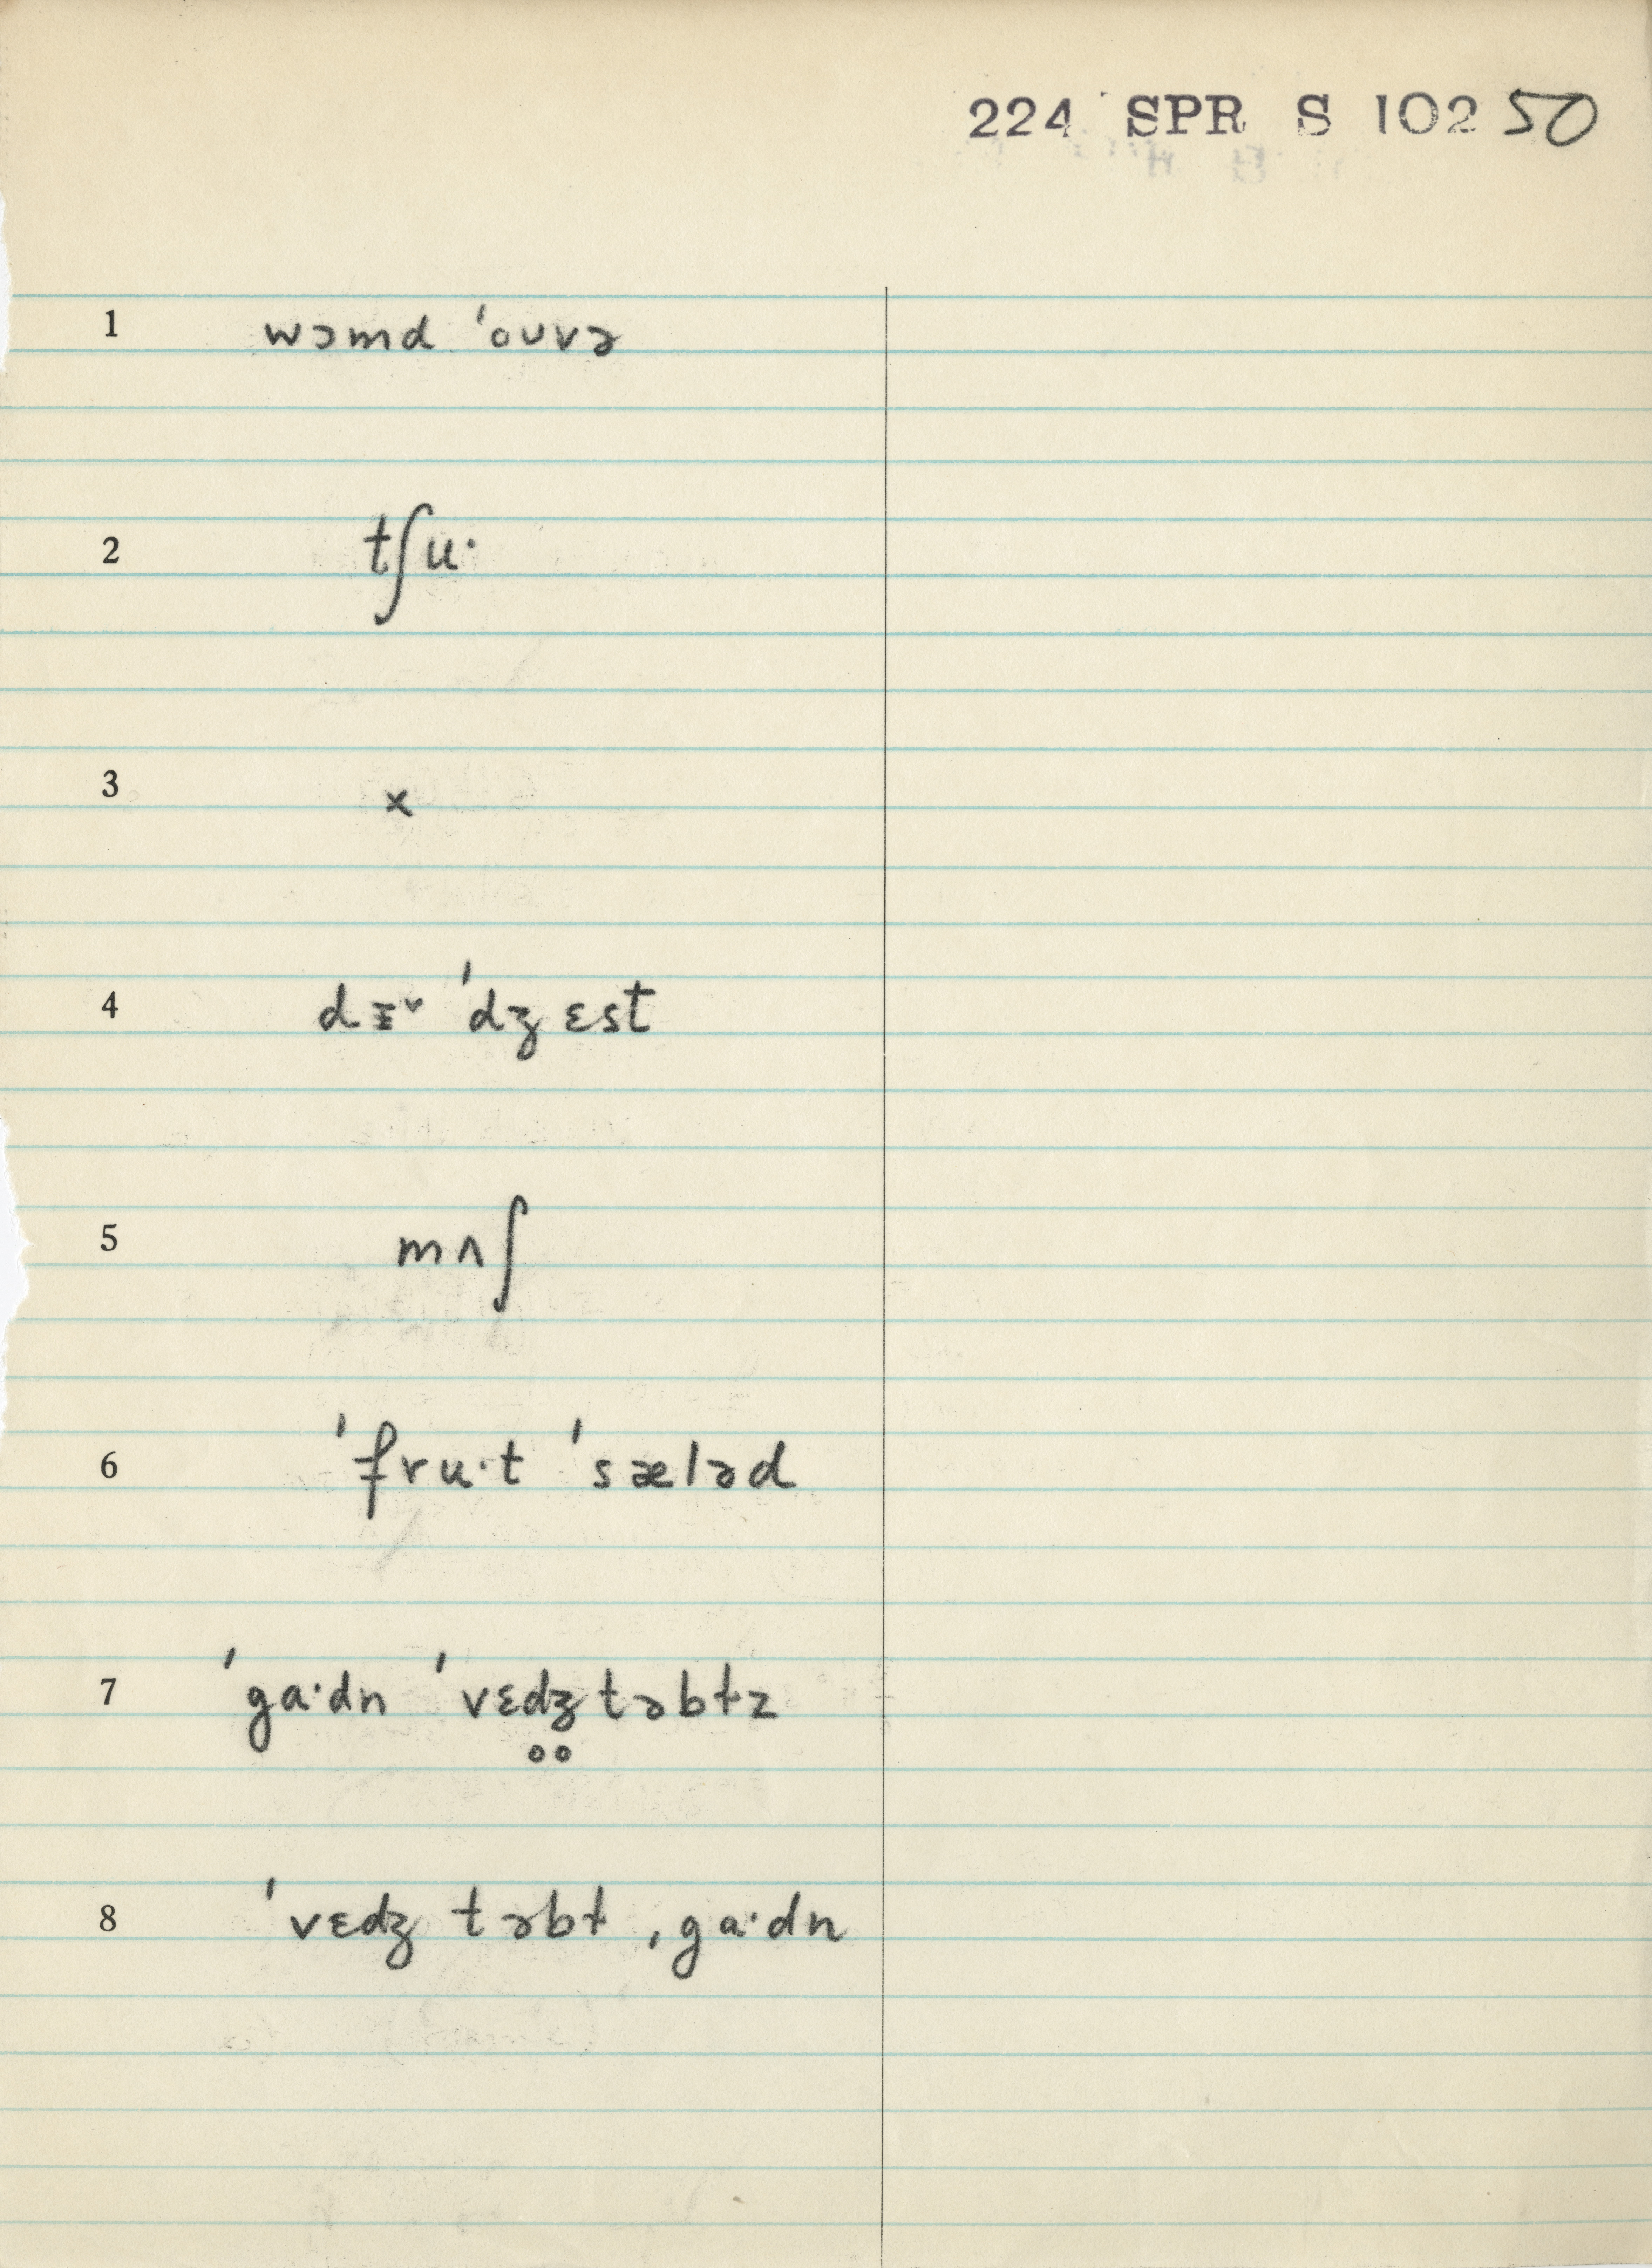 224 SPR S 102 50
1 wɔmd ˈouvə
2 tʃuˑ
3 x
4 dɪˇ ˈdʒɛst
5 mʌʃ
6 ˈfruˑt ˈsæləd
7 ˈgaˑdn ˈvɛd̥ʒ̥təbɫz
8 ˈvɛdʒtəbɫ ˌgaˑdn